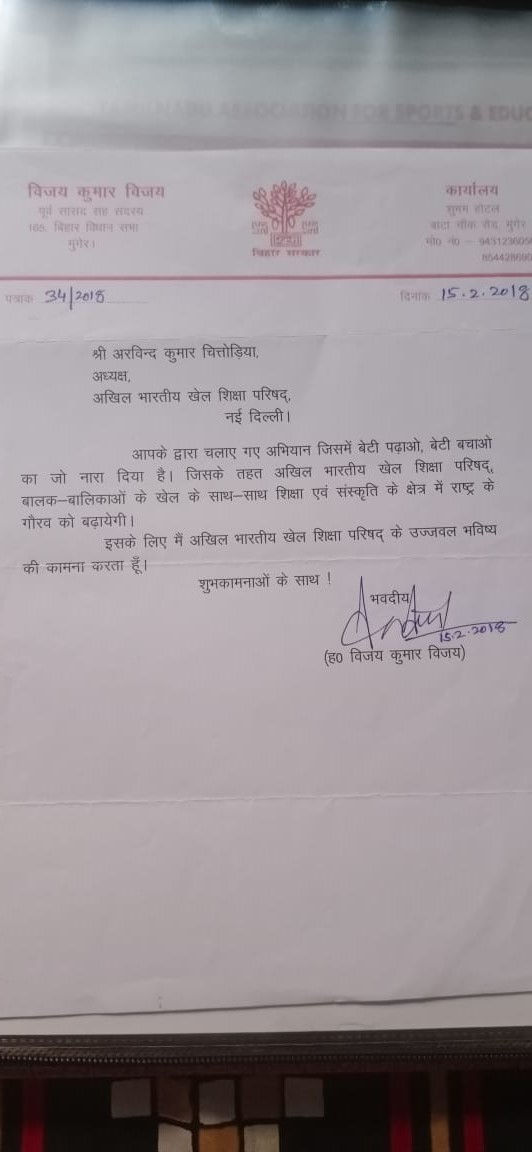 ASSOCIATION FOR SPORTS & EDUC
विजय कुमार विजय
पूर्व सांसद सह सदस्य
165, बिहार विधान सभा
मुंगेर।
बिहार सरकार
कार्यालय
शुभम होटल
बाटा चौक रोड, मुंगेर
मो0 नं0 -
पत्रांक 34/2018
दिनांक 15.2.2018
श्री अरविन्द कुमार चित्तोड़िया,
अध्यक्ष,
अखिल भारतीय खेल शिक्षा परिषद्,
नई दिल्ली।
आपके द्वारा चलाए गए अभियान जिसमें बेटी पढ़ाओ, बेटी बचाओ
का जो नारा दिया है। जिसके तहत अखिल भारतीय खेल शिक्षा परिषद्,
बालक–बालिकाओं के खेल के साथ–साथ शिक्षा एवं संस्कृति के क्षेत्र में राष्ट्र के
गौरव को बढ़ायेगी।
इसके लिए मैं अखिल भारतीय खेल शिक्षा परिषद् के उज्जवल भविष्य
की कामना करता हूँ।
शुभकामनाओं के साथ !
भवदीय
15.2.2018
(ह0 विजय कुमार विजय)